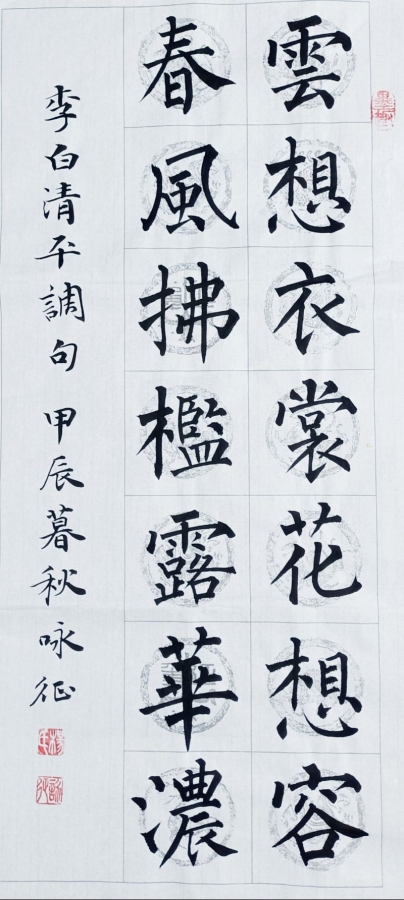 雲想衣裳花想容
春風拂檻露華濃
李白清平調句 甲辰暮秋咏征